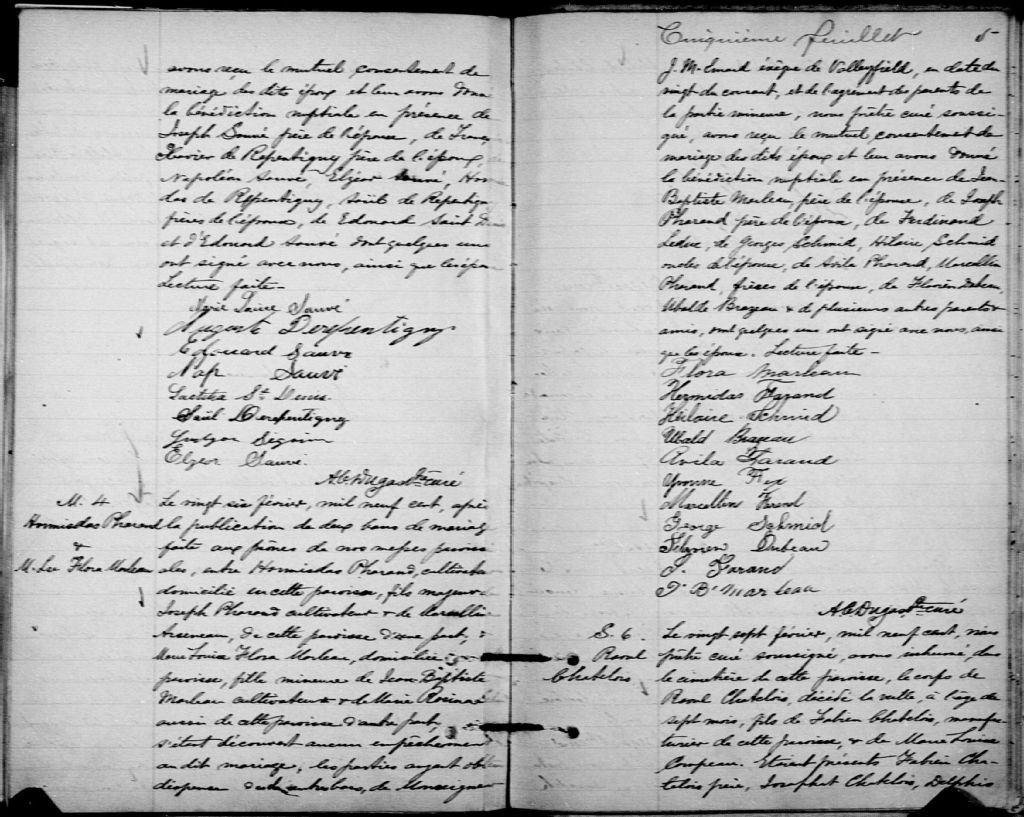 avons reçu le mutuel consentement de
mariage des dits époux et leur avons donné
la bénédiction nuptiale en présence de
Joseph Sauvé père de l'épouse, de François
Xavier de Repentigny père de l'époux,
Napoléon Sauvé, Elzéar Sauvé, Hormis-
das de Repentigny, Saül de Repentigny
frères de l'époux, de Edouard Saint Denis
et d'Edouard Sauvé dont quelques uns
ont signé avec nous, ainsi que les époux
Lecture faite -
Marie Laure Sauvé
Auguste Derepentigny
Edouard Sauve
Nap Sauvé
Laetitia St Denis
Saül Derepentigny
Seguin
Elzear Sauvé.
A. C. Dugas Ptre curé
M. 4
Hormisdas Pharand
&
M. Lse Flora Marleau
Le vingt six février, mil neuf cent, après
la publication de deux bans de mariage
faite aux prônes de nos messes paroissi-
ales, entre Hormisdas Pharand, cultivateur
domicilié en cette paroisse, fils majeur de
Joseph Pharand cultivateur & de Marcelline
Arseneau, de cette paroisse d'une part, &
Marie Louise Flora Marleau, domiciliée
paroisse, fille mineure de Jean Baptiste
Marleau cultivateur & de Marie
aussi de cette paroisse d'autre part,
s'étant découvert aucun empêchement
au dit mariage, les parties ayant obtenu
dispense bans, de Monseigneur
Cinquième feuillet 5
J. M. Emard évêque de Valleyfield, en date du
vingt du courant, et de l'agrément des parents de
la partie mineure, nous prêtre curé soussi-
gné, avons reçu le mutuel consentement de
mariage des dits époux et leur avons donné
la bénédiction nuptiale en présence de Jean
Baptiste Marleau, père de l'épouse, de Joseph
Pharand père de l'époux, de Ferdinand
Leduc, de Georges Schmid, Hilaire Schmid
oncles de l'épouse, de Avila Pharand, Marcellin
Pharand, frères de l'époux, de Florien Dubeau,
Ubalde Brazeau & de plusieurs autres parents &
amis, dont quelques uns ont signé avec nous, ainsi
que les époux. Lecture faite -
Flora Marleau
Hermidas Farand
Hilaire Schmid
Ubald Brazeau
Avila Farand
Yvonne
Marcellin Farand
George Schmid
Dubeau
J. Farand
J. B. Marleau
A. C. Dugas Ptre curé
S. 6.
Raoul
Chatelois
Le vingt sept février, mil neuf cent, nous
prêtre curé soussigné, avons inhumé, dans
le cimetière de cette paroisse, le corps de
Raoul Chatelois, décédé la veille, à l'âge de
sept mois, fils de Fabien Chatelois, manufac-
turier de cette paroisse, & de Marie Louise
Crepeau. Etaient présents Fabien Cha-
telois père, Josaphat Chatelois, Delphis